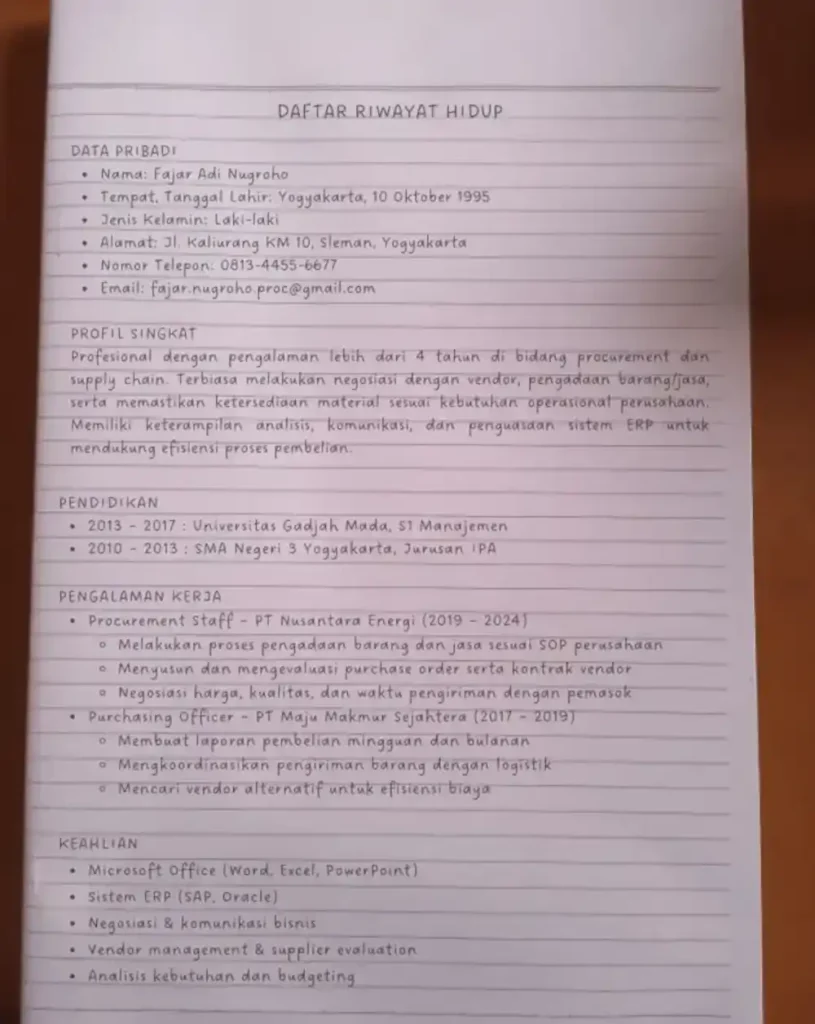 DAFTAR RIWAYAT HIDUP
DATA PRIBADI
• Nama: Fajar Adi Nugroho
• Tempat, Tanggal Lahir: Yogyakarta, 10 Oktober 1995
• Jenis Kelamin: Laki-laki
• Alamat: Jl. Kaliurang KM 10, Sleman, Yogyakarta
• Nomor Telepon: 0813-4455-6677
• Email: fajar.nugroho.proc@gmail.com
PROFIL SINGKAT
Profesional dengan pengalaman lebih dari 4 tahun di bidang procurement dan
supply chain. Terbiasa melakukan negosiasi dengan vendor, pengadaan barang/jasa,
serta memastikan ketersediaan material sesuai kebutuhan operasional perusahaan.
Memiliki keterampilan analisis, komunikasi, dan penguasaan sistem ERP untuk
mendukung efisiensi proses pembelian.
PENDIDIKAN
• 2013 - 2017 : Universitas Gadjah Mada, S1 Manajemen
• 2010 - 2013 : SMA Negeri 3 Yogyakarta, Jurusan IPA
PENGALAMAN KERJA
• Procurement Staff - PT Nusantara Energi (2019 - 2024)
○ Melakukan proses pengadaan barang dan jasa sesuai SOP perusahaan
○ Menyusun dan mengevaluasi purchase order serta kontrak vendor
○ Negosiasi harga, kualitas, dan waktu pengiriman dengan pemasok
• Purchasing Officer - PT Maju Makmur Sejahtera (2017 - 2019)
○ Membuat laporan pembelian mingguan dan bulanan
○ Mengkoordinasikan pengiriman barang dengan logistik
○ Mencari vendor alternatif untuk efisiensi biaya
KEAHLIAN
• Microsoft Office (Word, Excel, PowerPoint)
• Sistem ERP (SAP, Oracle)
• Negosiasi & komunikasi bisnis
• Vendor management & supplier evaluation
• Analisis kebutuhan dan budgeting